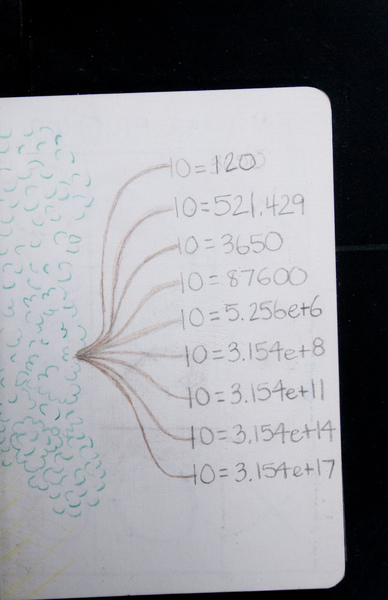 10=120
10=521.429
10=3650
10=87600
10=5.256e+6
10=3.154e+8
10=3.154e+11
10=3.154e+14
10=3.154e+17